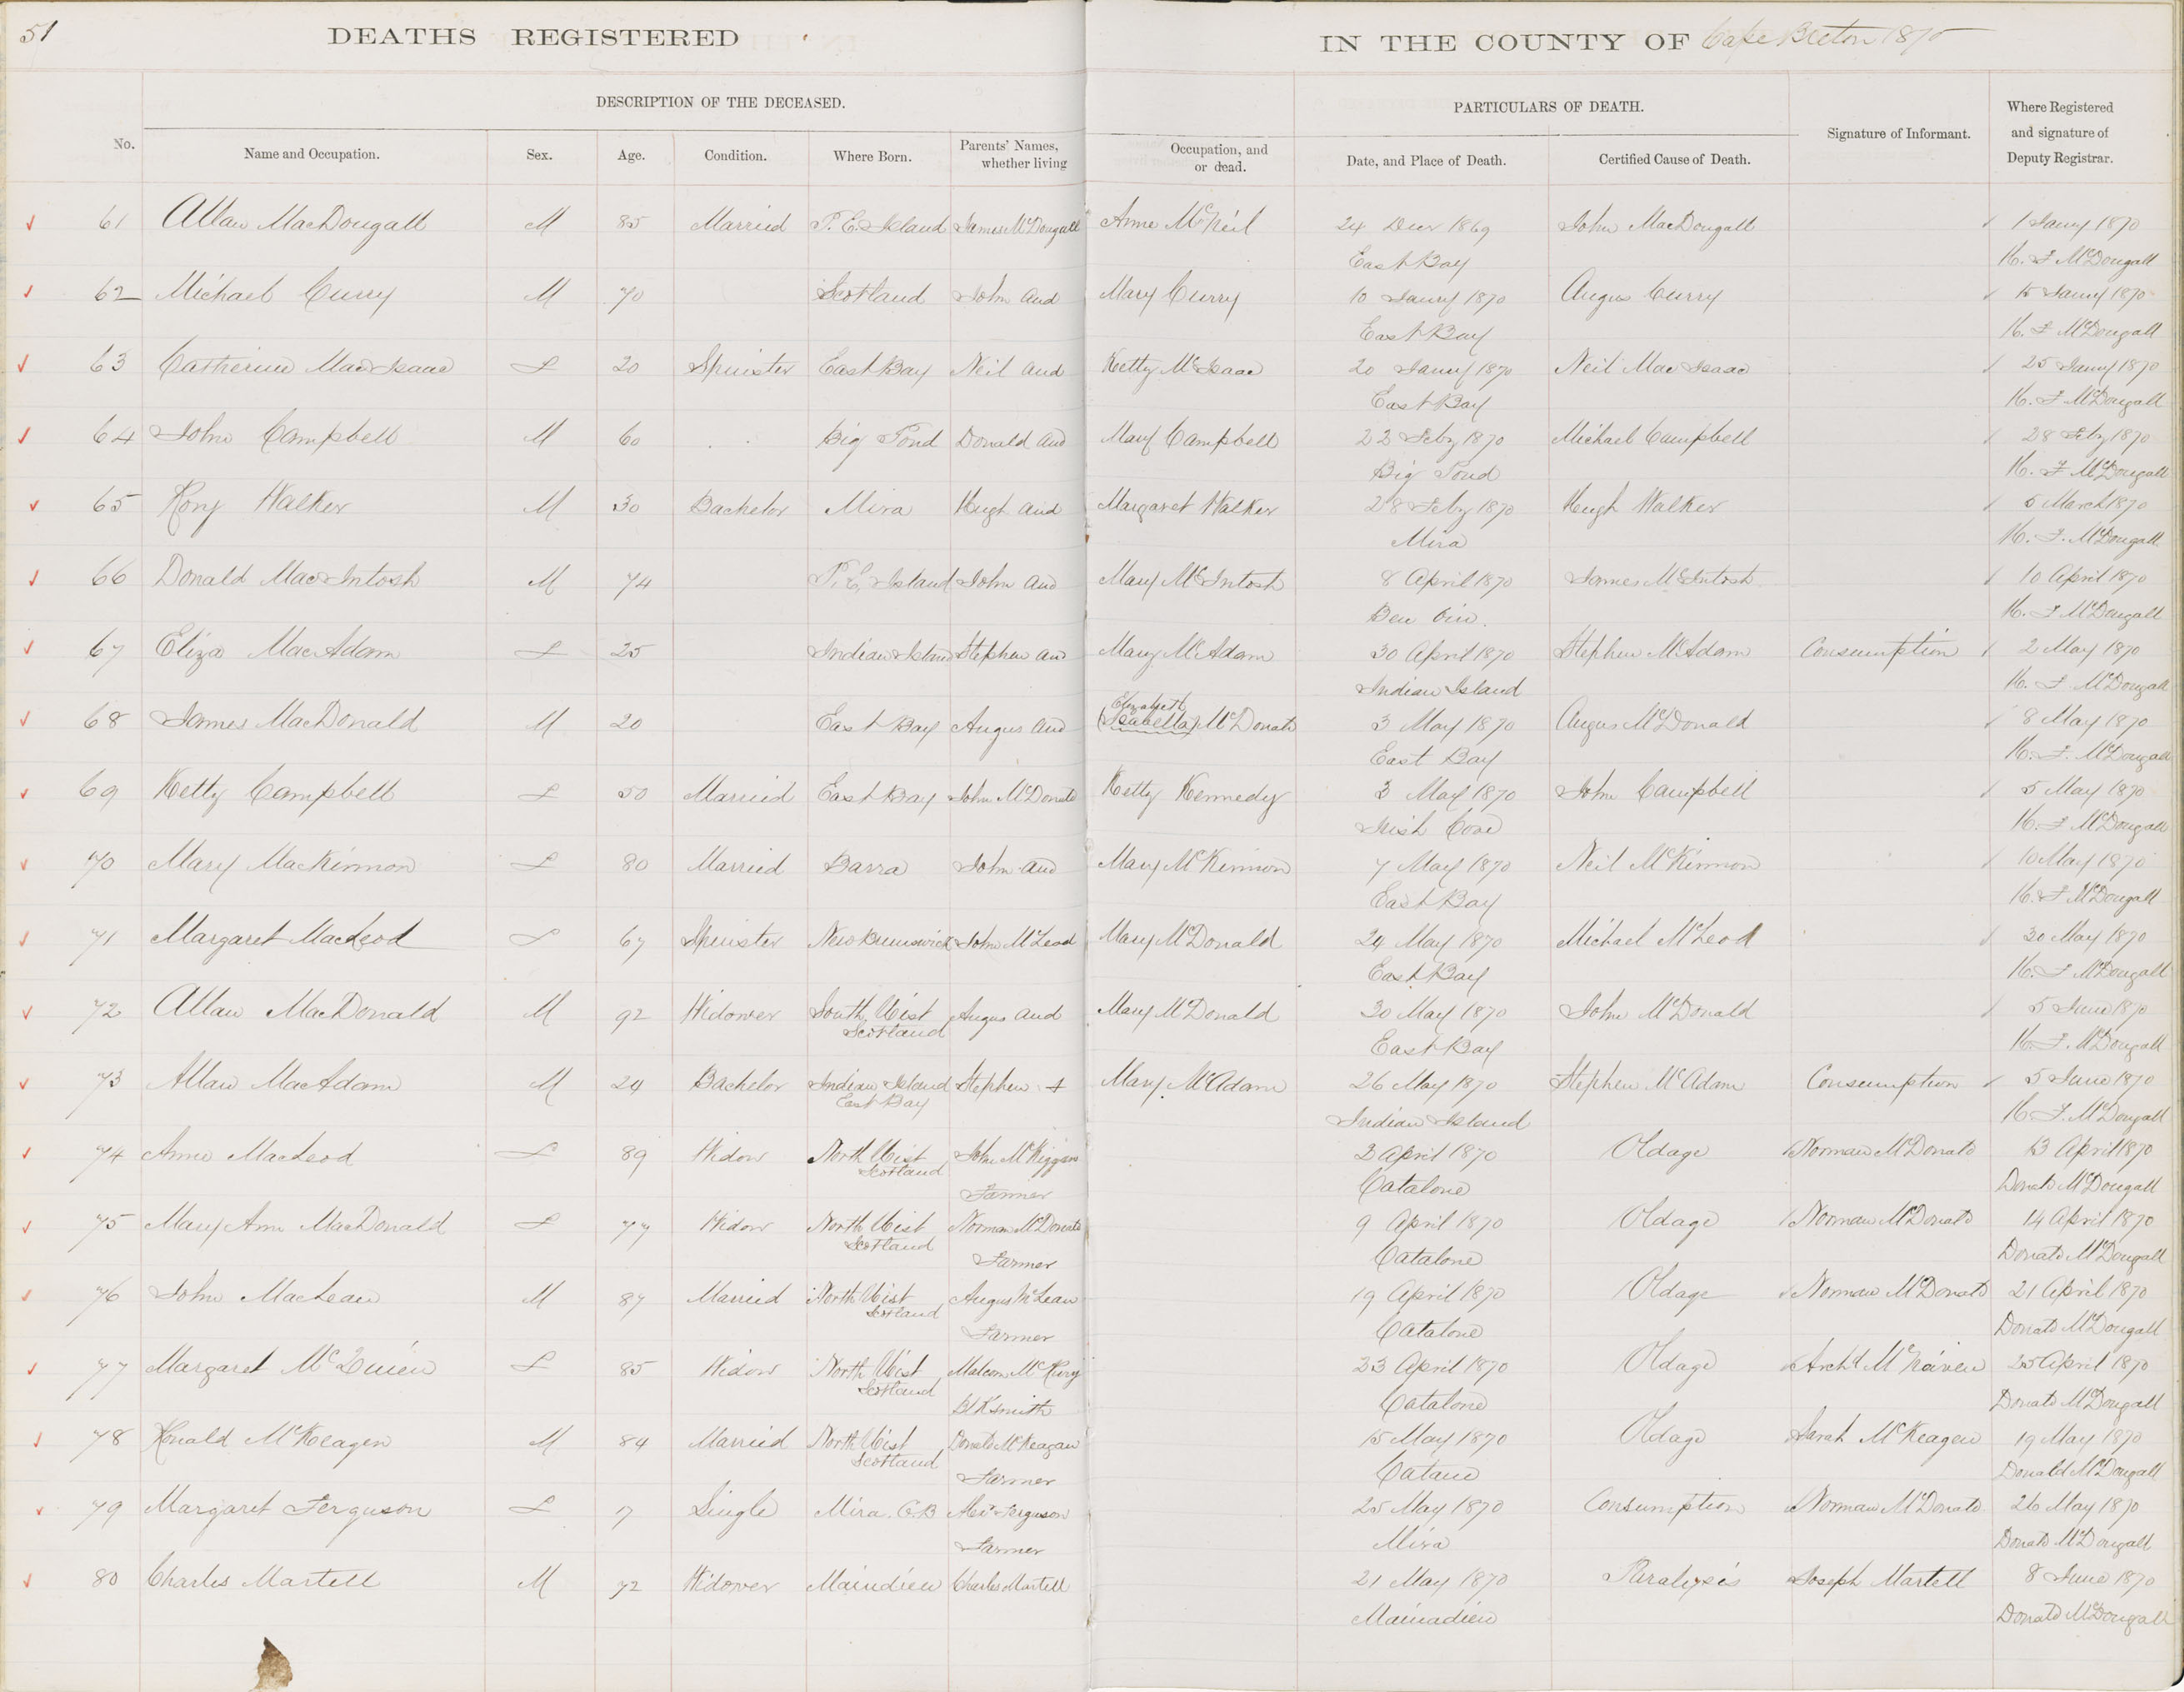 51
DEATHS REGISTERED IN THE COUNTY OF Cape Breton 1870
DESCRIPTION OF THE DECEASED. PARTICULARS OF DEATH.
No. Name and Occupation. Sex. Age. Condition. Where Born. Parents' Names, whether living Occupation, and or dead. Date, and Place of Death. Certified Cause of Death. Signature of Informant. Where Registered and signature of Deputy Registrar.
61 Allan MacDougall M 85 Married P. E. Island James McDougall Anne McNeil 24 Decr 1869 John MacDougall 1 Jany 1870
East Bay H. F McDougall
62 Michael Curry M 70 Scotland John and Mary Curry 10 Jany 1870 Angus Curry 15 Jany 1870
East Bay H. F McDougall
63 Catherine MacIsaac F 20 Spinster East Bay Neil and Ketty McIsaac 20 Jany 1870 Neil MacIsaac 25 Jany 1870
East Bay H. F McDougall
64 John Campbell M 60 Big Pond Donald and Mary Campbell 22 Feby 1870 Michael Campbell 28 Feby 1870
Big Pond H. F McDougall
65 Rory Walker M 30 Bachelor Mira Hugh and Margaret Walker 28 Feby 1870 Hugh Walker 5 March 1870
Mira H. F. McDougall
66 Donald MacIntosh M 74 P. E. Island John and Mary McIntosh 8 April 1870 James McIntosh 10 April 1870
Ben Oin. H. F McDougall
67 Eliza MacAdam F 25 Indian Island Stephen and Mary McAdam 30 April 1870 Stephen McAdam Consumption 2 May 1870
Indian Island H. F McDougall
Elizabeth
68 James MacDonald M 20 East Bay Angus and (Isabella) McDonald 3 May 1870 Angus McDonald 8 May 1870
East Bay H. F. McDougall
69 Ketty Campbell F 50 Married East Bay John McDonald Ketty Kennedy 3 May 1870 John Campbell 5 May 1870
Irish Cove H. F McDougall
70 Mary MacKinnon F 80 Married Barra John and Mary McKinnon 7 May 1870 Neil McKinnon 10 May 1870
East Bay H. F McDougall
71 Margaret MacLeod F 67 Spinster New Brunswick John McLeod Mary McDonald 24 May 1870 Michael McLeod 30 May 1870
East Bay H. F McDougall
72 Allan MacDonald M 92 Widower South Uist Angus and Mary McDonald 30 May 1870 John McDonald 5 June 1870
Scotland East Bay H. F. McDougall
73 Allan MacAdam M 24 Bachelor Indian Island Stephen + Mary McAdam 26 May 1870 Stephen McAdam Consumption 5 June 1870
East Bay Indian Island H. F. McDougall
74 Anne MacLeod F 89 Widow North Uist John McKiggan 3 April 1870 Oldage Norman McDonald 13 April 1870
Scotland Farmer Catalone Donald McDougall
75 Mary Ann MacDonald F 77 Widow North Uist Norman McDonald 9 April 1870 Oldage Norman McDonald 14 April 1870
Scotland Farmer Catalone Donald McDougall
76 John MacLean M 87 Married North Uist Angus McLean 19 April 1870 Oldage Norman McDonald 21 April 1870
Scotland Farmer Catalone Donald McDougall
77 Margaret McQuien F 85 Widow North Uist Malcom McRury 23 April 1870 Oldage Archd 25 April 1870
Scotland BlKsmith Catalone Donald McDougall
78 Ronald McKeagen M 84 Married North Uist Donald McKeagan 15 May 1870 Oldage Sarah McKeagen 19 May 1870
Scotland Farmer Donald McDougall
79 Margaret Ferguson F 7 Single Mira. C.B Alexr Ferguson 25 May 1870 Consumption Norman McDonald 26 May 1870
Farmer Mira Donald McDougall
80 Charles Martell M 72 Widower Maindieu Charles Martell 21 May 1870 Paralysis Joseph Martell 8 June 1870
Mainadieu Donald McDougall